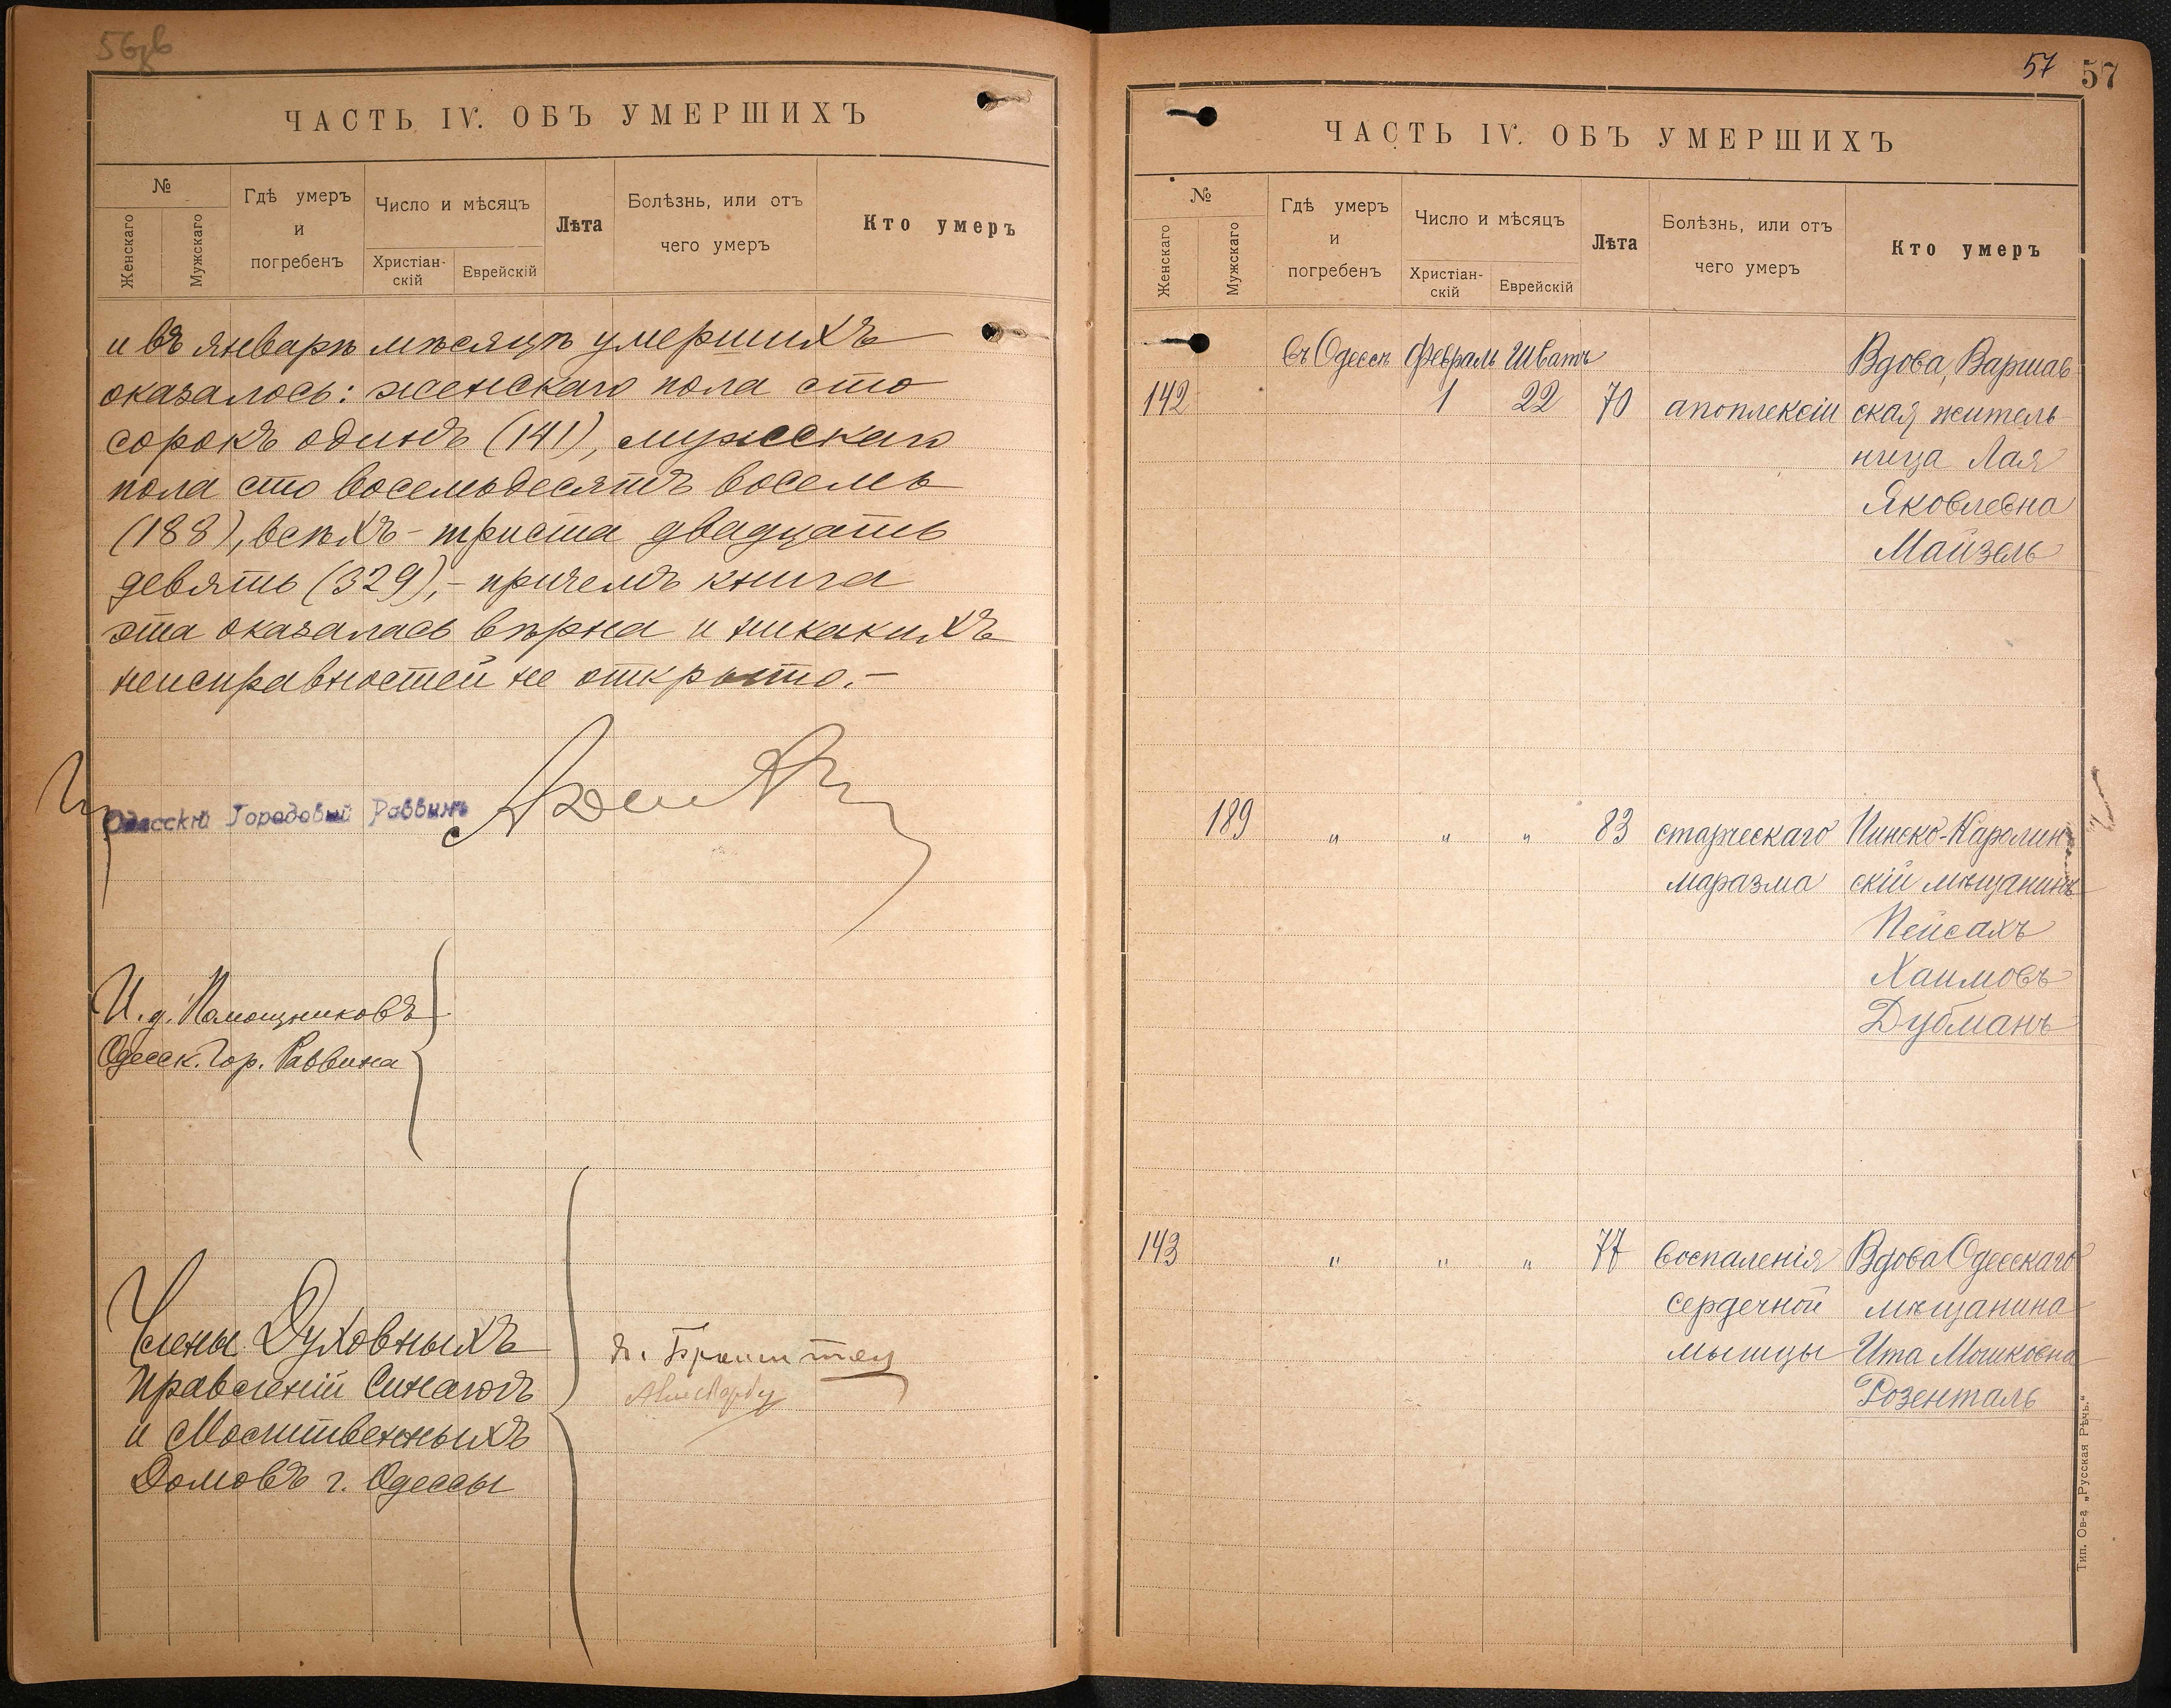 ЧАСТЬ IV. ОБЪ УМЕРШИХЪ
№
Женскаго
Мужскаго
Гдѣ умеръ
и
погребенъ
Число и мѣсяцъ
Христіан-
скій
Еврейскій
Лѣта
Болѣзнь, или отъ
чего умеръ
Кто умеръ
и въ январѣ мѣсяцѣ умершихъ
оказалось: женскаго пола сто
сорокъ одинъ (141), мужскаго
пола сто восемьдесятъ восемь
(188), всѣхъ - триста двадцать
девять (329), - причемъ книга
эта оказалась вѣрна и никакихъ
неисправностей не открыто. -
Одесскій Городовый Раввинъ
И. д. Помощниковъ
Одесск. Гор. Раввина
Члены Духовныхъ
Правленій Синагогъ
и Молитвенныхъ
Домовъ г. Одессы
57 57
ЧАСТЬ IV. ОБЪ УМЕРШИХЪ
№
Женскаго
Мужскаго
Гдѣ умеръ
и
погребенъ
Число и мѣсяцъ
Христіан-
скій
Еврейскій
Лѣта
Болѣзнь, или отъ
чего умеръ
Кто умеръ
въ Одессѣ Февраль Шватъ Вдова, Варшав
142 1 22 70 апоплексіи ская житель
ница Лая
Яковлевна
Майзель
189 " " " 83 старческаго Пинско-Каролин
маразма скій мѣщанинъ
Пейсахъ
Хаимовъ
Дубманъ
143 " " " 77 воспаленія Вдова Одесскаго
сердечной мѣщанина
мышцы Ита Мошковна
Розенталь
Тип. Ов-а „Русская Рѣчь."